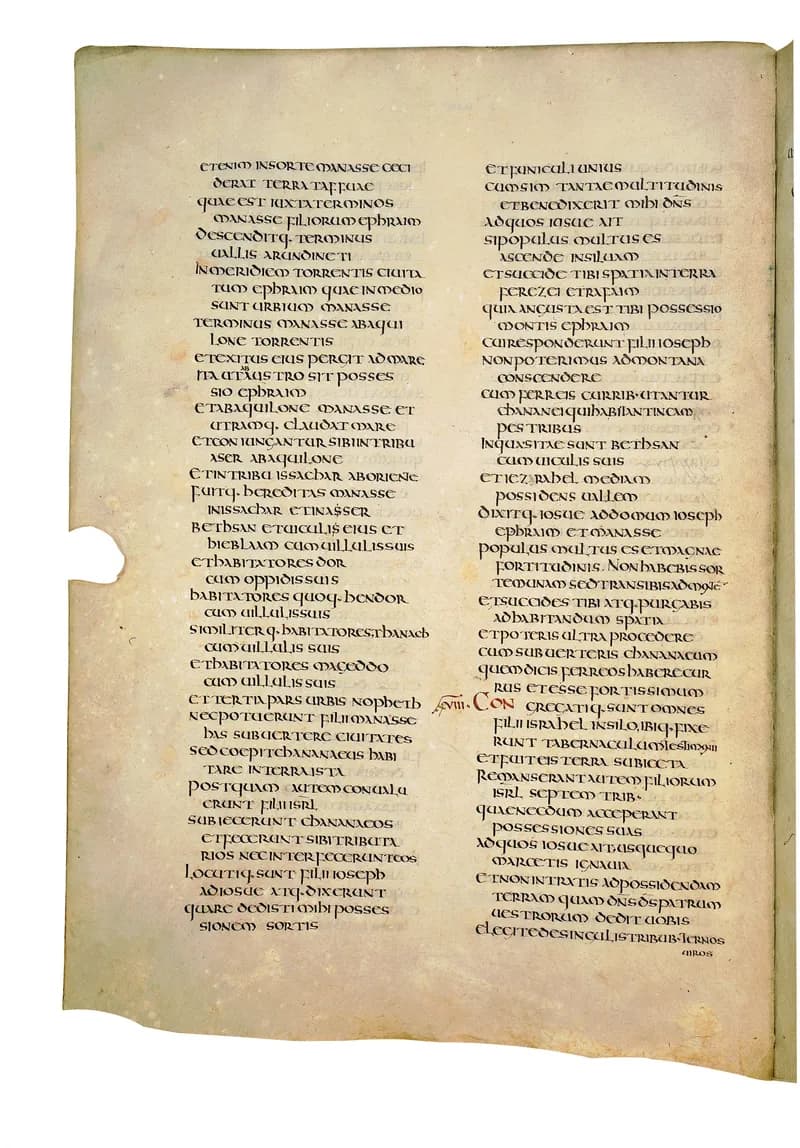 ETENIM IN SORTE MANASSE CECI
DERAT TERRA TAFFUAE
QUAE EST IUXTA TERMINOS
MANASSE FILIORUM EPHRAIM
DESCENDITQ· TERMINUS
UALLIS ARUNDINETI
IN MERIDIEM TORRENTIS CIUITA
TUM EPHRAIM QUAE IN MEDIO
SUNT URBIUM MANASSE
TERMINUS MANASSE AB AQUI
LONE TORRENTIS
ET EXITUS EIUS PERGIT AD MARE
ITA UT AB AUSTRO SIT POSSES
SIO EPHRAIM
ET AB AQUILONE MANASSE ET
UTRAMQ· CLAUDAT MARE
ET CONIUNGANTUR SIBI IN TRIBU
ASER AB AQUILONE
ET IN TRIBU ISSACHAR AB ORIENE
FUITQ· HEREDITAS MANASSE
IN ISSACHAR ET IN ASSER
BETHSAN ET UICULIS EIUS ET
HIEBLAAM CUM UILLULIS SUIS
ET HABITATORES DOR
CUM OPPIDIS SUIS
HABITATORES QUOQ· HENDOR
CUM UILLULIS SUIS
SIMILITERQ· HABITATORES THANACH
CUM UILLULIS SUIS
ET HABITATORES MAGEDDO
CUM UILLULIS SUIS
ET TERTIA PARS URBIS NOPHETH
NEC POTUERUNT FILII MANASSE
HAS SUBUERTERE CIUITATES
SED COEPIT CHANANAEUS HABI
TARE IN TERRA ISTA
POSTQUAM AUTEM CONUALU
ERUNT FILII ISRL
SUBIECERUNT CHANANAEOS
ET FECERUNT SIBI TRIBUTA
RIOS NEC INTERFECERUNT EOS
LOCUTIQ· SUNT FILII IOSEPH
AD IOSUE ATQ· DIXERUNT
QUARE DEDISTI MIHI POSSES
SIONEM SORTIS
ET FUNICULI UNIUS
CUM SIM TANTAE MULTITUDINIS
ET BENEDIXERIT MIHI DNS
AD QUOS IOSUE AIT
SI POPULUS MULTUS ES
ASCENDE IN SILUAM
ET SUCCIDE TIBI SPATIA IN TERRA
FEREZEI ET RAFAIM
QUIA ANGUSTA EST TIBI POSSESSIO
MONTIS EPHRAIM
CUI RESPONDERUNT FILII IOSEPH
NON POTERIMUS AD MONTANA
CONSCENDERE
CUM FERREIS CURRIB· UTANTUR
CHANANEI QUI HABITANT IN CAM
PESTRIBUS
IN QUA SITAE SUNT BETHSAN
CUM UICULIS SUIS
ET IEZRAHEL MEDIAM
POSSIDENS UALLEM
DIXITQ· IOSUE AD DOMUM IOSEPH
EPHRAIM ET MANASSE
POPULUS MULTUS ES ET MAGNAE
FORTITUDINIS· NON HABEBIS SOR
TEM UNAM SED TRANSIBIS AD
ET SUCCIDES TIBI ATQ· PURGABIS
AD HABITANDUM SPATIA
ET POTERIS ULTRA PROCEDERE
CUM SUBUERTERIS CHANANAEUM
QUEM DICIS FERREOS HABERE CUR
RUS ET ESSE FORTISSIMUM
XVIII· CONGREGATIQ· SUNT OMNES
FILII ISRAHEL IN SILO, IBIQ· FIXE
RUNT TABERNACULUM TESTIMONII
ET FUIT EIS TERRA SUBIECTA
REMANSERANT AUTEM FILIORUM
ISRL SEPTEM TRIB·
QUAE NECDUM ACCEPERANT
POSSESSIONES SUAS
AD QUOS IOSUE AIT· USQUEQUO
MARCETIS IGNAUIA
ET NON INTRATIS AD POSSIDENDAM
TERRAM QUAM DNS DS PATRUM
UESTRORUM DEDIT UOBIS
ELEGITE DE SINGULIS TRIBUB· TERNOS
UIROS